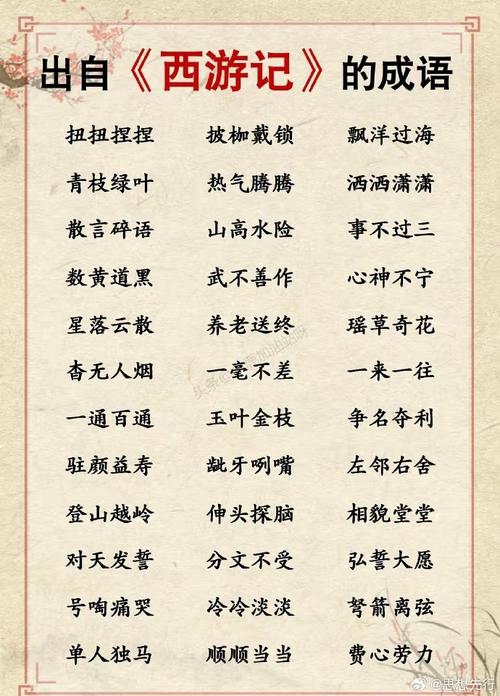 出自《西游记》的成语
扭扭捏捏 披枷戴锁 飘洋过海
青枝绿叶 热气腾腾 洒洒潇潇
散言碎语 山高水险 事不过三
数黄道黑 武不善作 心神不宁
星落云散 养老送终 瑶草奇花
杳无人烟 一毫不差 一来一往
一通百通 玉叶金枝 争名夺利
驻颜益寿 龇牙咧嘴 左邻右舍
登山越岭 伸头探脑 相貌堂堂
对天发誓 分文不受 弘誓大愿
号啕痛哭 冷冷淡淡 弩箭离弦
单人独马 顺顺当当 费心劳力
@思想先行